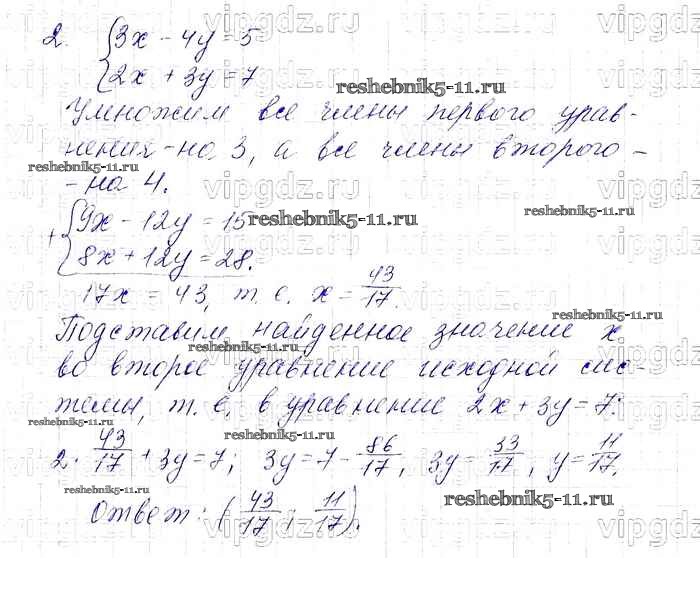 2. {3x - 4y = 5
{2x + 3y = 7
Умножим все члены первого урав-
нения - на 3, а все члены второго -
- на 4.
+ {9x - 12y = 15
{8x + 12y = 28.
17x = 43, т. е. x = 43/17.
Подставим найденное значение x
во второе уравнение исходной сис-
темы, т. е. в уравнение 2x + 3y = 7:
2 · 43/17 + 3y = 7; 3y = 7 - 86/17, 3y = 33/17, y = 11/17.
Ответ: (43/17; 11/17).
vipgdz.ru
reshebnik5-11.ru